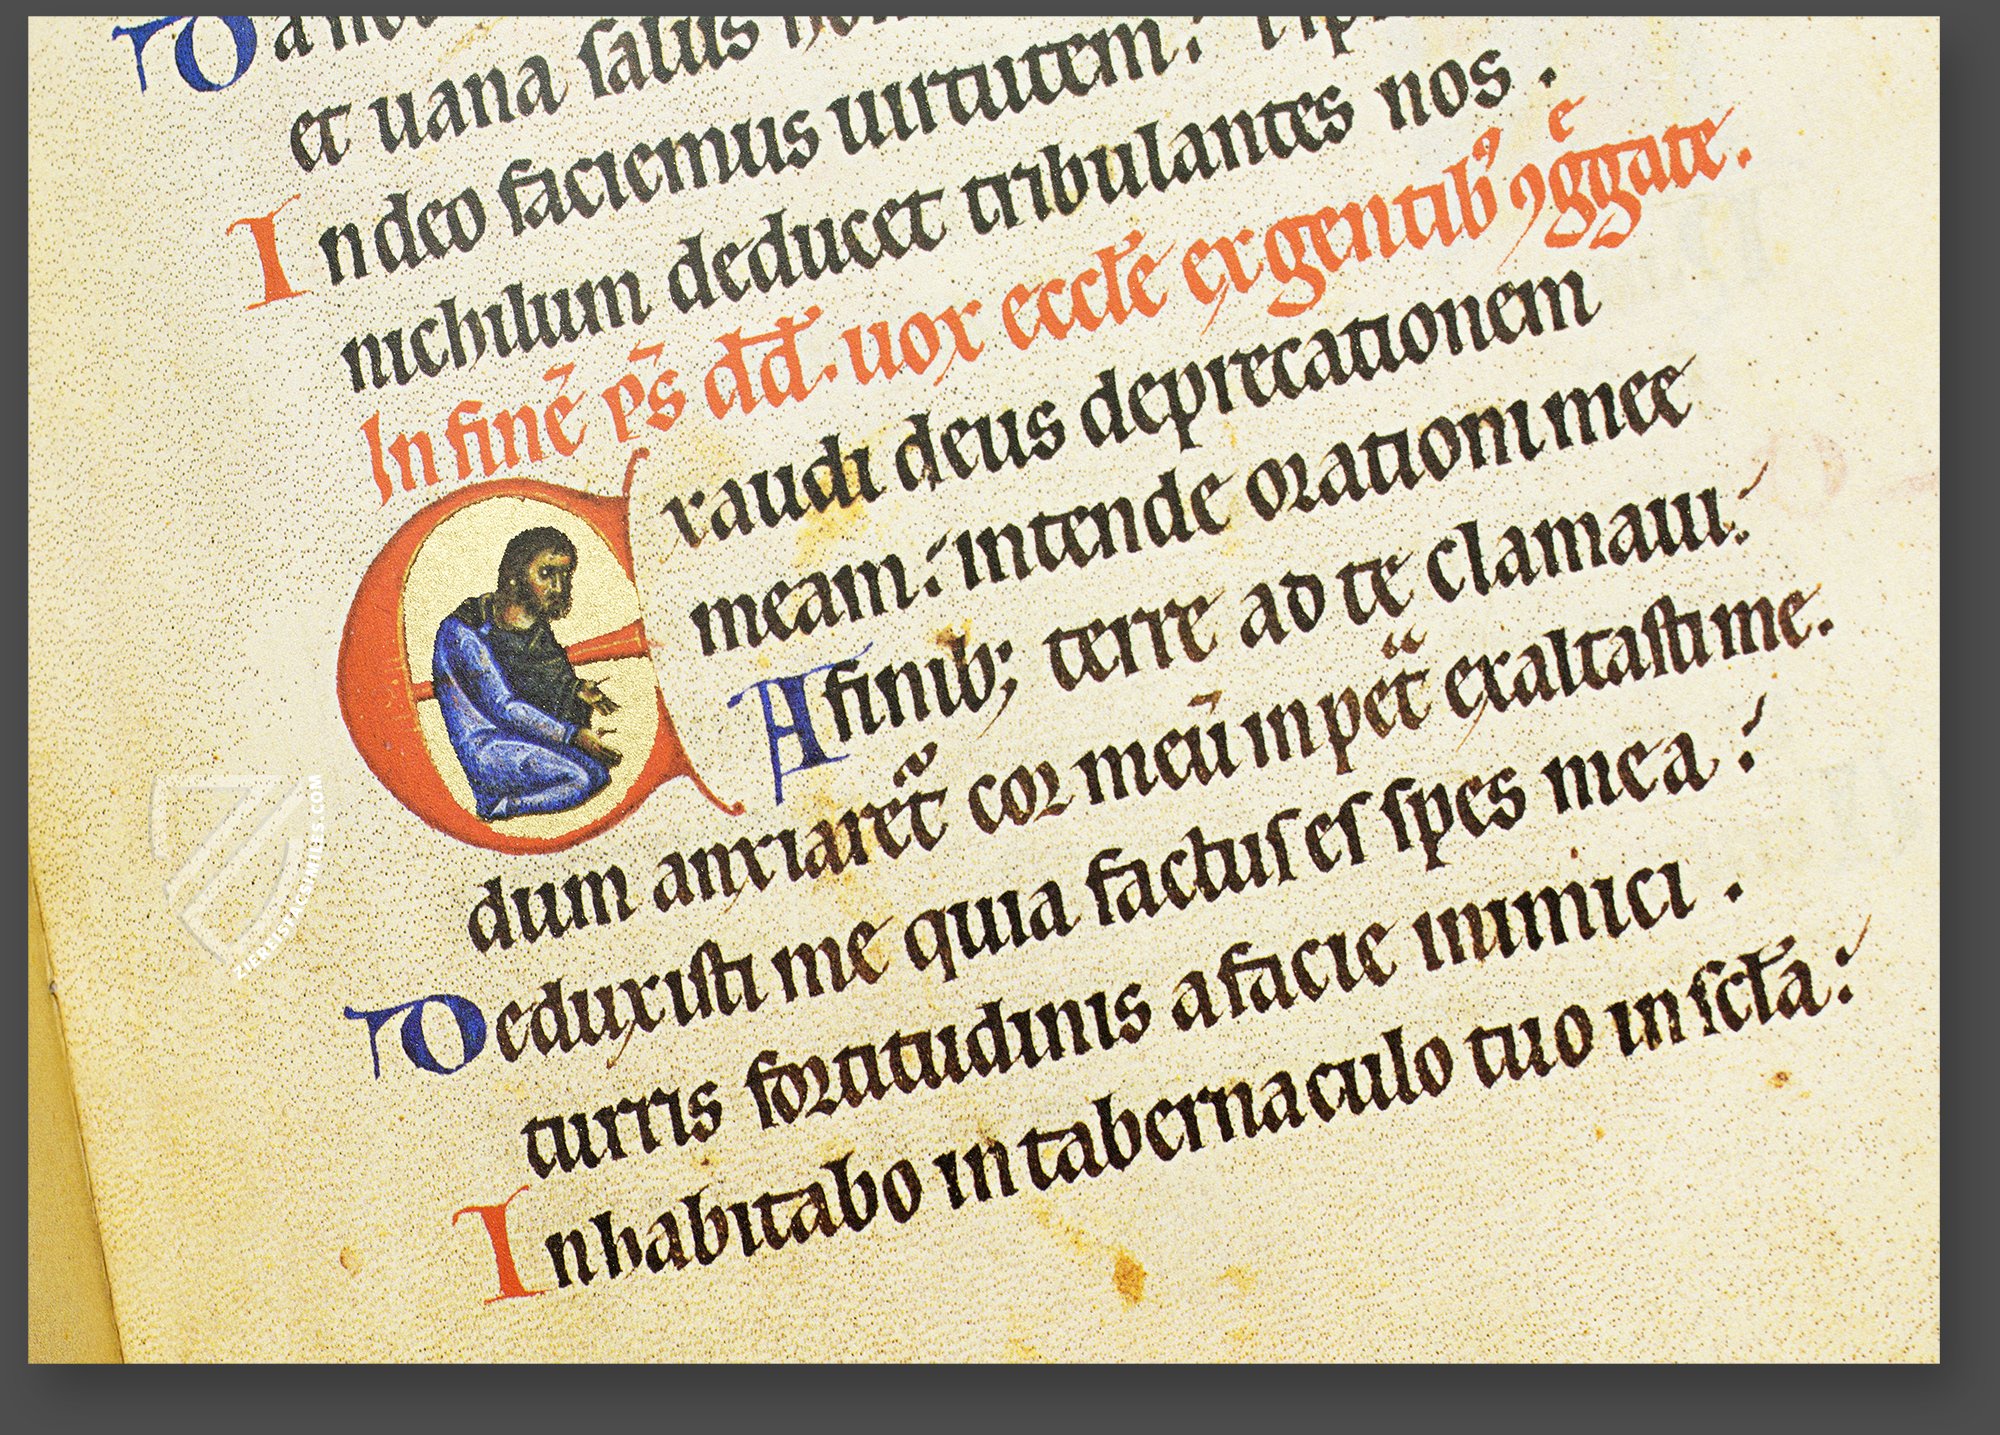 et uana salus
Indeo faciemus uirtutem:
nichilum deducet tribulantes nos.
In finē p̄s dd̄. uox eccłe ex gentib⁹ ꝯgͤgate.
Exaudi deus deprecationem
meam: intende orationi mee
A finib; terre ad te clamaui:
dum anxiaret᷑ cor meū in pet᷑ exaltasti me.
Deduxisti me quia factus es spes mea:
turris fortitudinis a facie inimici.
Inhabitabo in tabernaculo tuo in scła:
ZIEREISFACSIMILES.COM